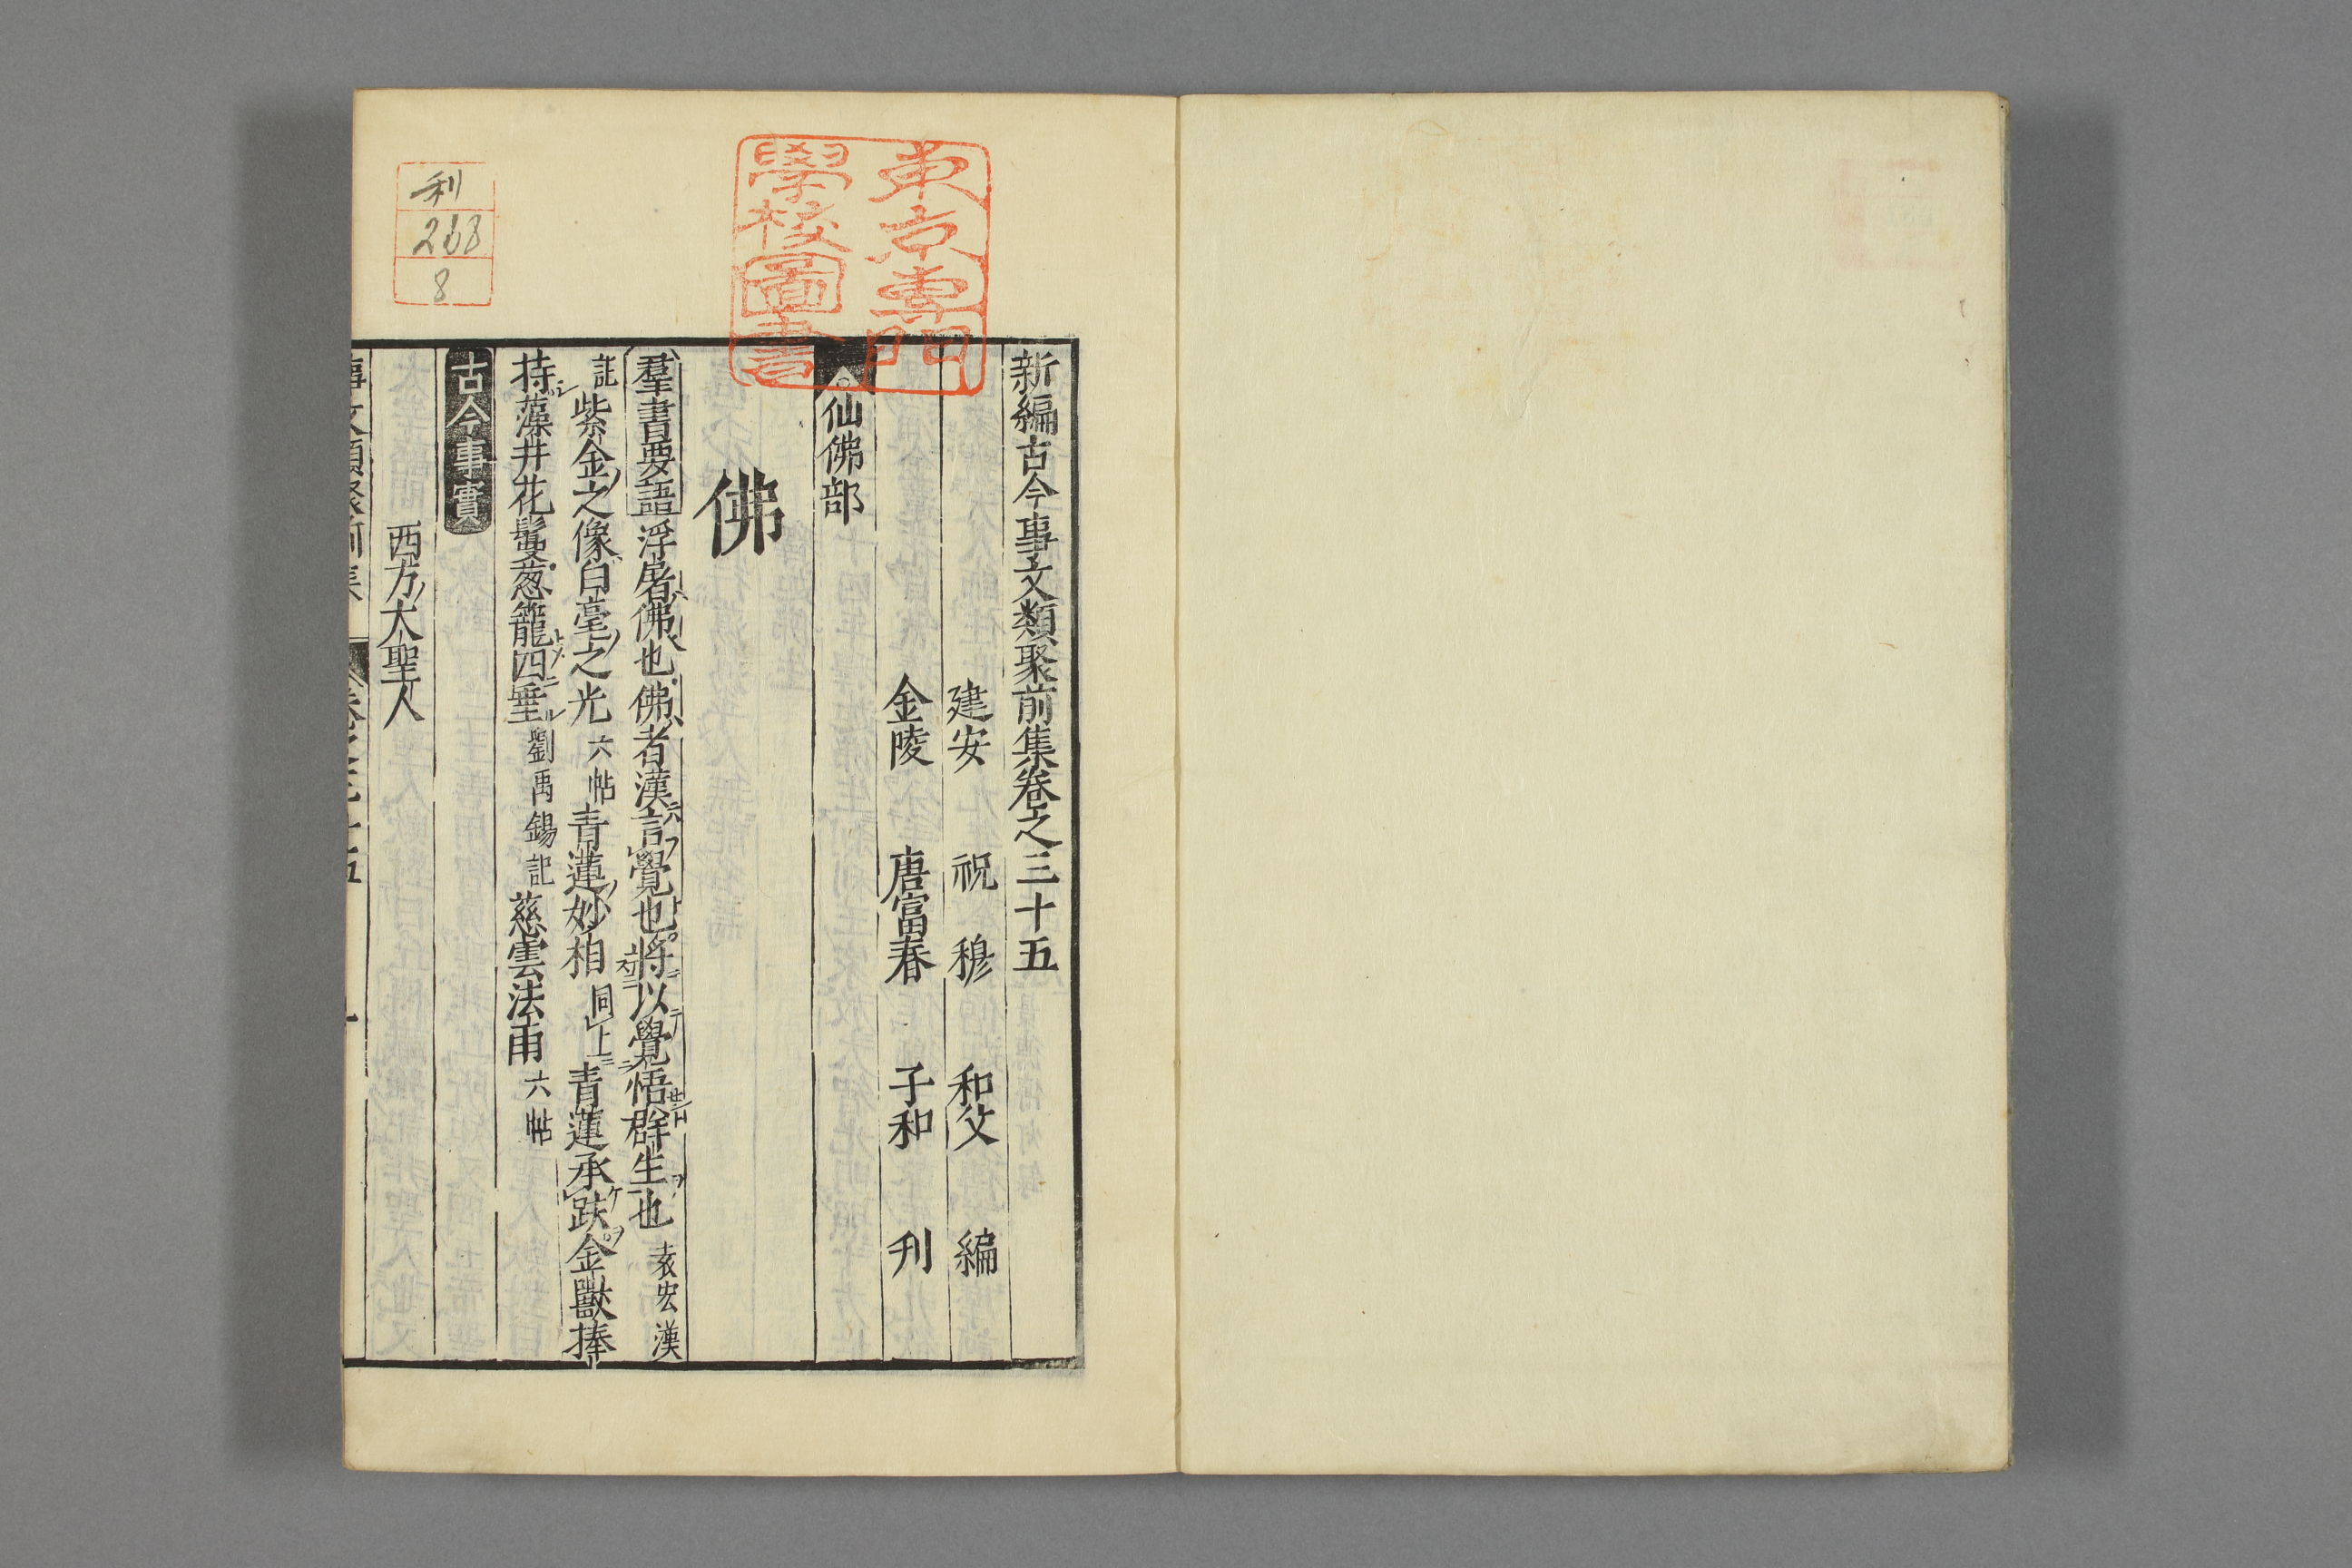 新編古今事文類聚前集卷之三十五
建安 祝 穆 和父 編
金陵 唐富春 子和 刋
仙佛部
佛
羣書要語 浮屠佛也佛者漢言覺也將以覺悟群生也 袁宏漢
記 紫金之像白毫之光 六帖 青蓮妙相 同上 青蓮承趺金獸捧
持藻井花鬘葱籠四垂 劉禹錫記 慈雲法雨 六帖
古今事實
西方大聖人
東京專門
學校圖書
利
268
8